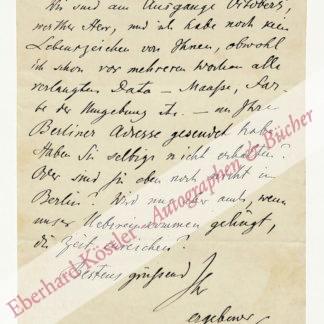 Wir sind am Ausgange Octobers,
werther Herr, und ich habe noch kein
Lebenszeichen von Ihnen, obwohl
ich schon vor mehreren Wochen alle
verlangten Data — Maaße, Far-
be der Umgebung etc. — an Ihre
Berliner Adresse gesendet habe.
Haben Sie selbige nicht erhalten?
Oder sind Sie eben noch nicht in
Berlin? Wird nur aber auch, wenn
unser Uebereinkommen gelingt,
die Zeit ausreichen?
Bestens grüssend
Ihr
ergebener
Eberhard Köstler Autographen & Bücher